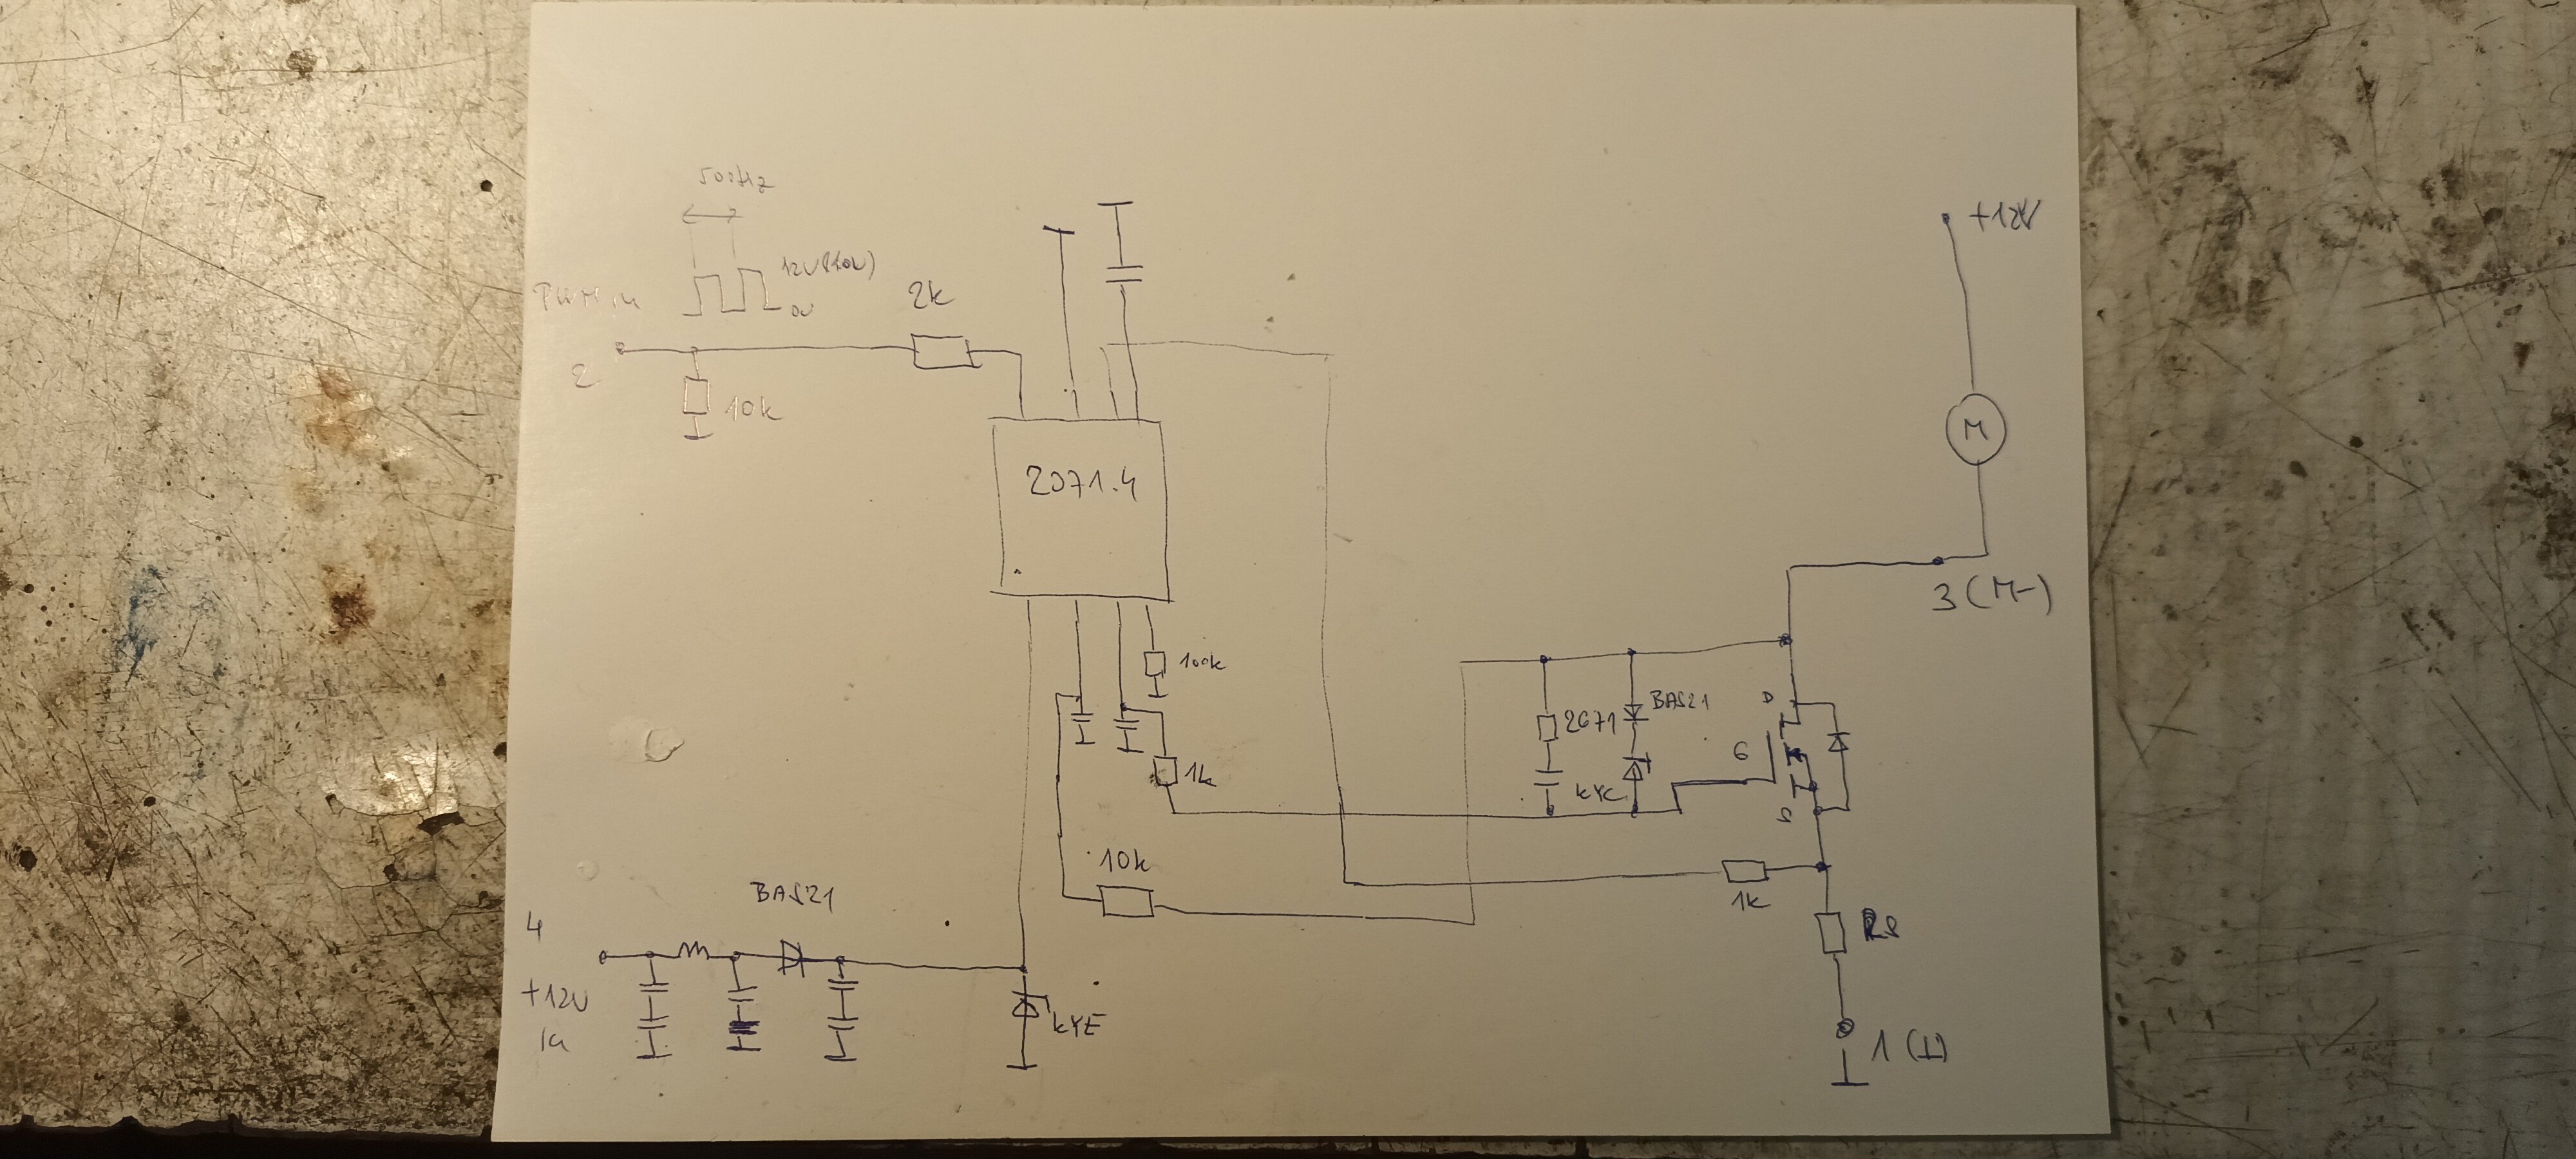 500Hz
12V(10V)
0V
PWM in
2
2k
10k
2071.4
+12V
M
3 (M-)
100k
1k
2671
BAS21
D
G
S
10k
1k
BAS21
4
+12V
KYE
1 (⊥)